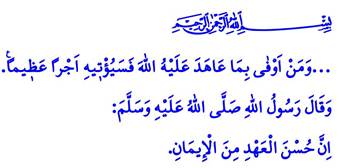 بِسْمِ اللهِ الرَّحْمٰنِ الرَّحِيمِ
...وَمَنْ اَوْفٰى بِمَا عَاهَدَ عَلَيْهُ اللّٰهَ فَسَيُؤْت۪يهِ اَجْرًا عَظ۪يمًاۚ.
وَقَالَ رَسُولُ اللّٰهِ صَلَّى اللّٰهُ عَلَيْهِ وَسَلَّمَ:
اِنَّ حُسْنَ الْعَهْدِ مِنَ الْإِيمَانِ.